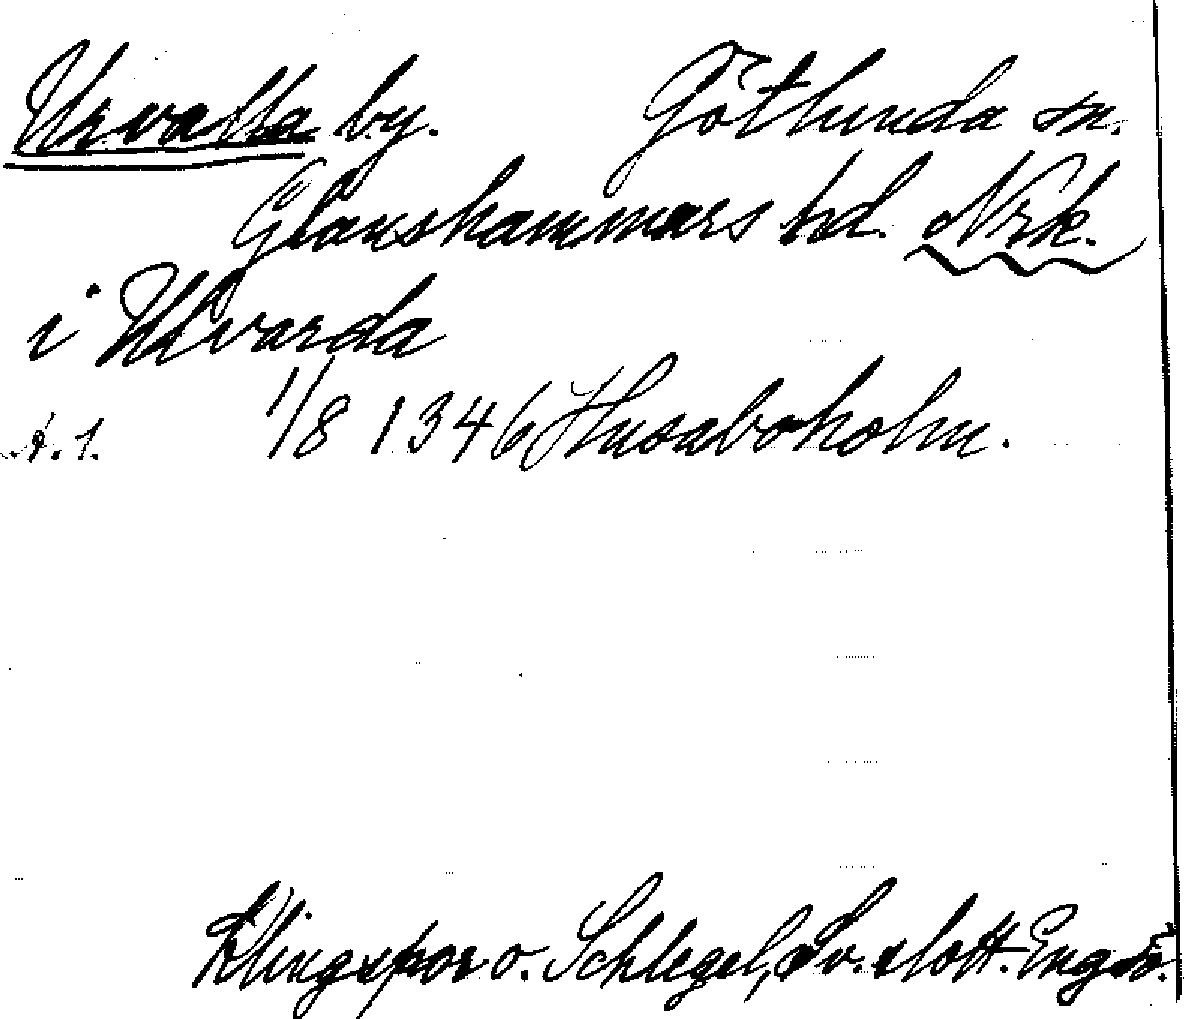 Urvalla by. Götlunda sn.
Glanshammars hd. Nrk.
i Ulvarda
A.1. 1/8 1346 Husaboholm.
Klingspor o. Schlegel, Sv. slott. Engsö.